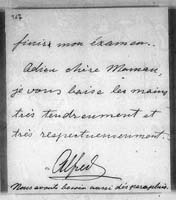 finir mon éxamen.
Adieu chère Maman,
je vous baise les mains
très tendrement et
très respectueusement.
Alfred
Nous avons besoin aussi des parapluies.